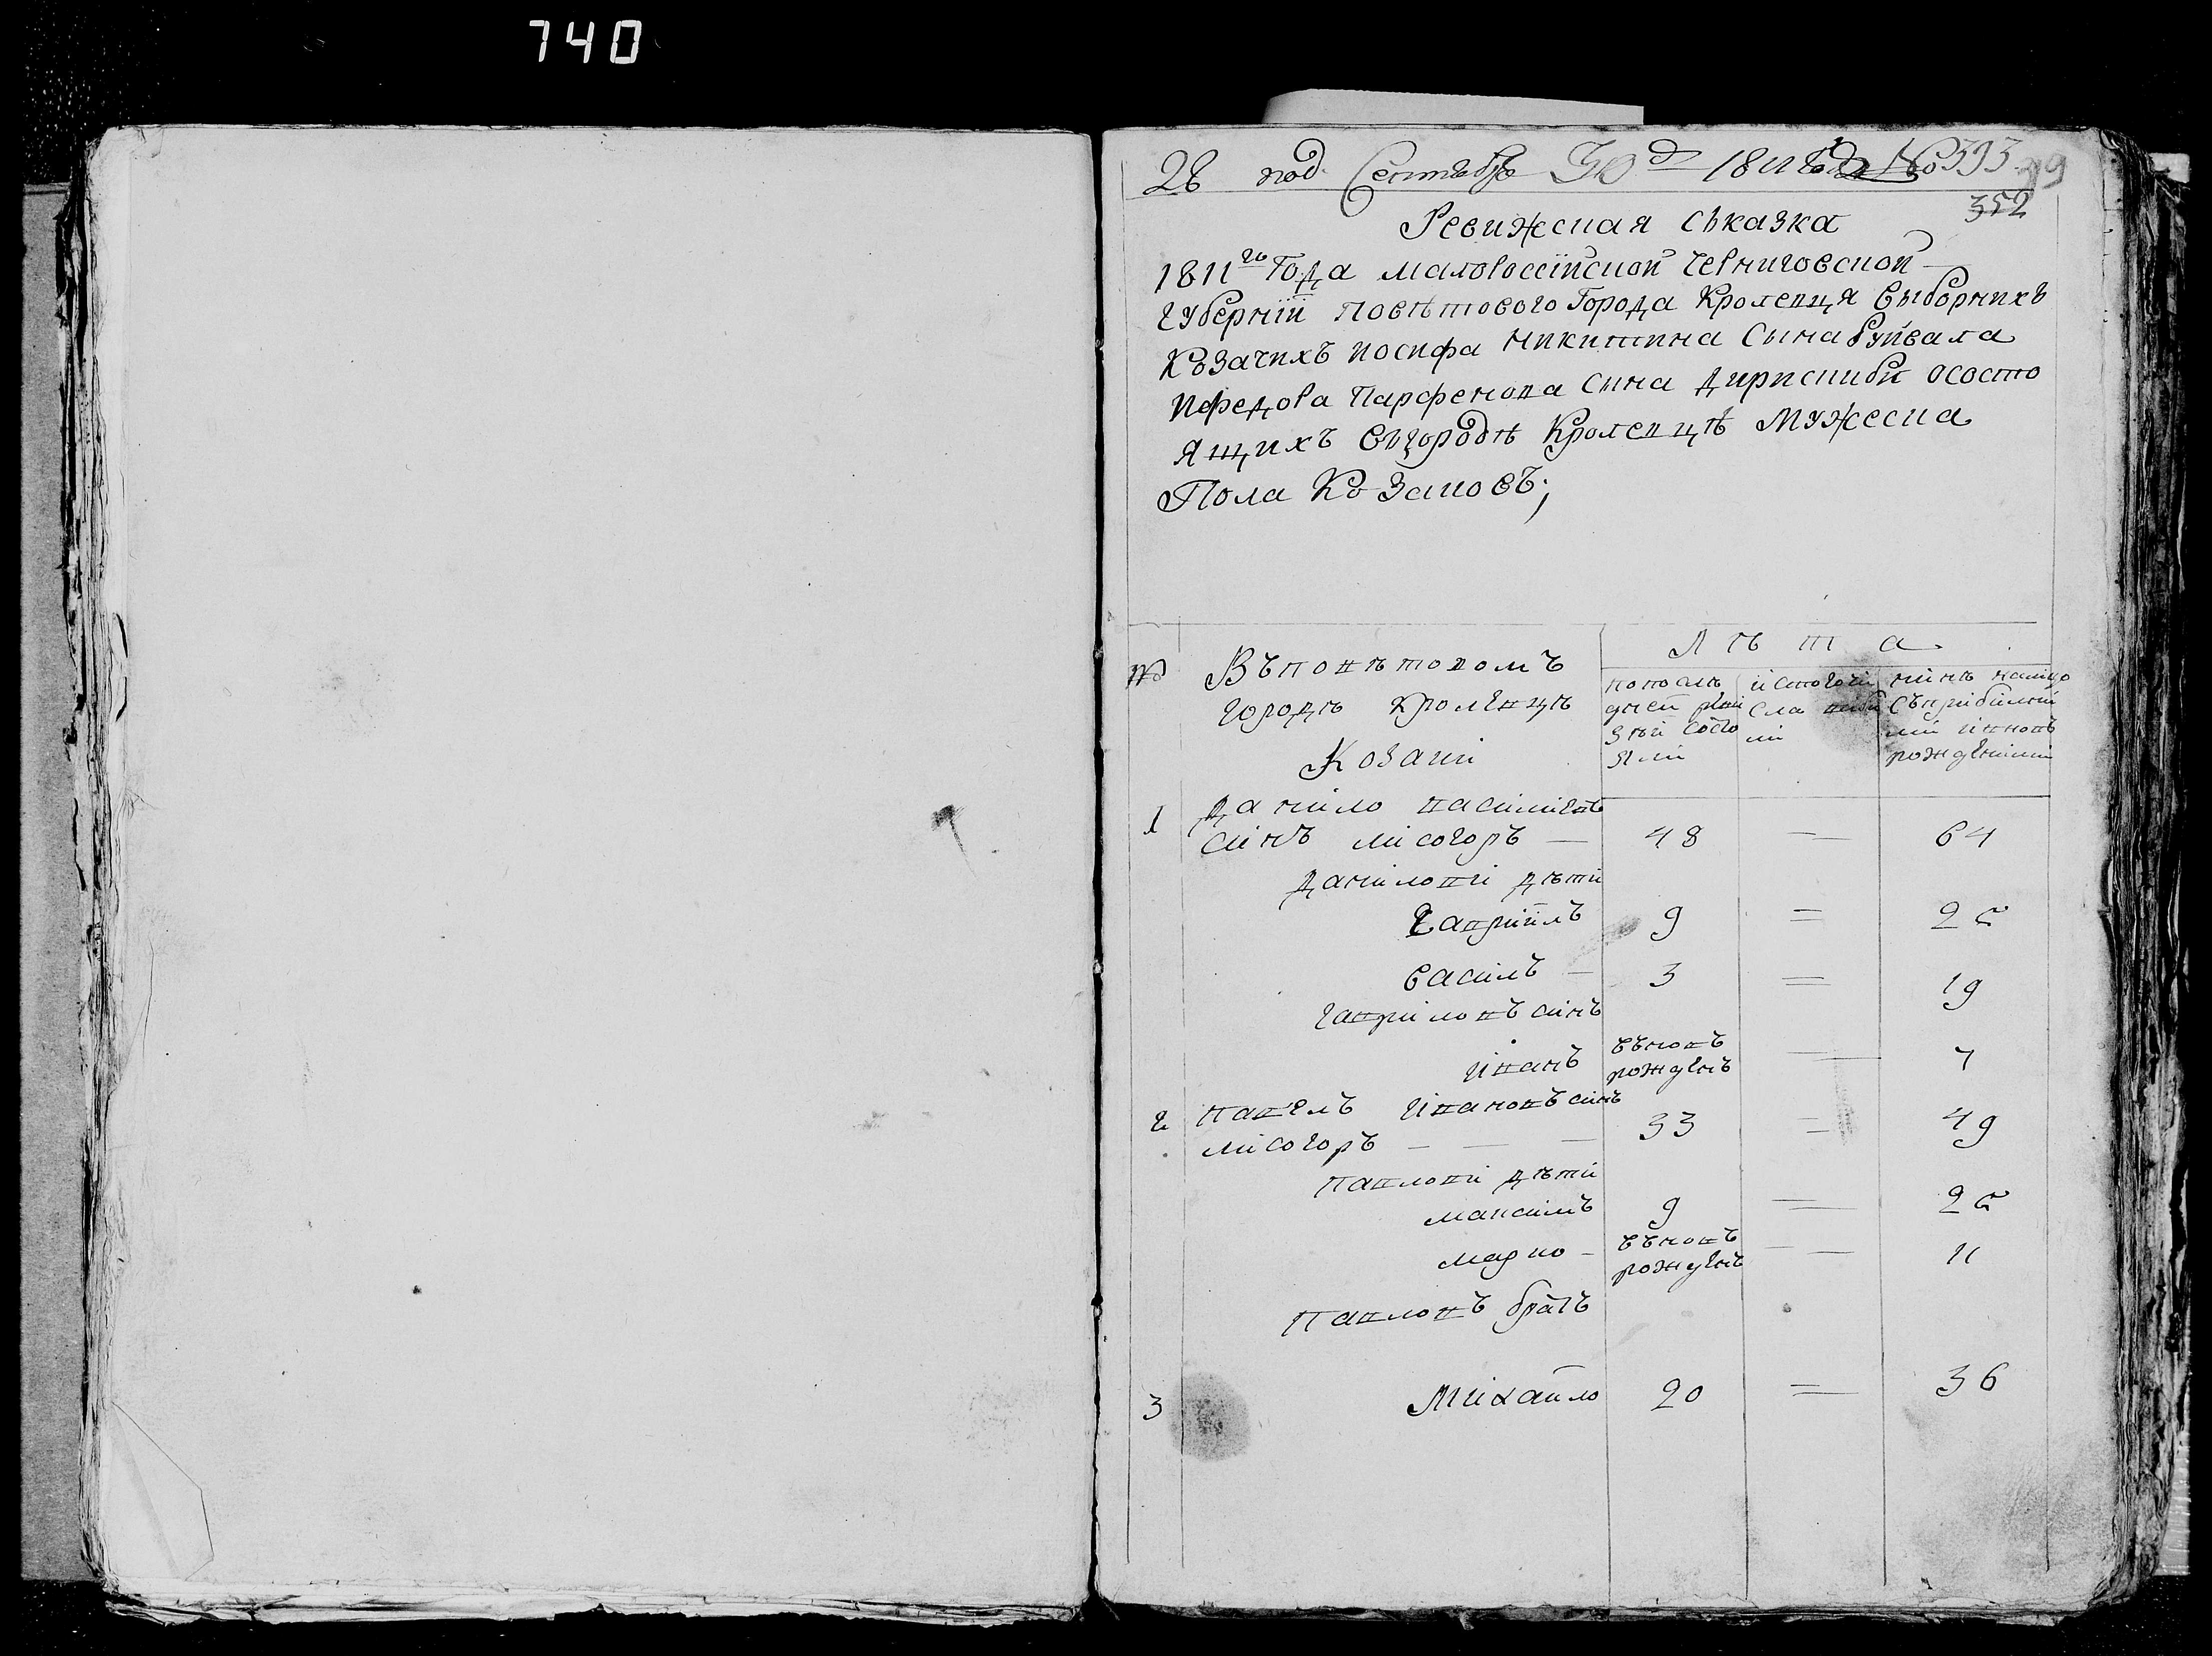 740
28 под. Сентября 30д 1811 года №393
352
Ревижская сказка
1811го Года малороссійской черниговской
губерніи повѣтового Города Кролевця выборнихъ
Козачихъ иосифа никитина сына Буйвала
Ифедора Парфенова сина дирискиби ососто
ящихъ Вгородѣ Кролевцѣ Мужеска
Пола Козаковъ;
№ Въповѣтовомъ Лѣта
городѣ кролевцѣ
Козаки
попослѣдней ревизіи состояли
истого числа виби
нинѣ налицо съприбилими ивновъ рожденими
1 Данило васильевъ
синъ лисогоръ — 48 — 64
данилови дѣти
Гавріилъ 9 = 25
василъ — 3 = 19
гавриловъ синъ
иванъ въновъ рожденъ — 4
2 павелъ ивановъ синъ
лисогоръ — — — 33 = 49
павлови дѣти
максимъ 9 — 25
марко — въновъ рожденъ — 11
павловъ братъ
3 Михайло 20 = 36